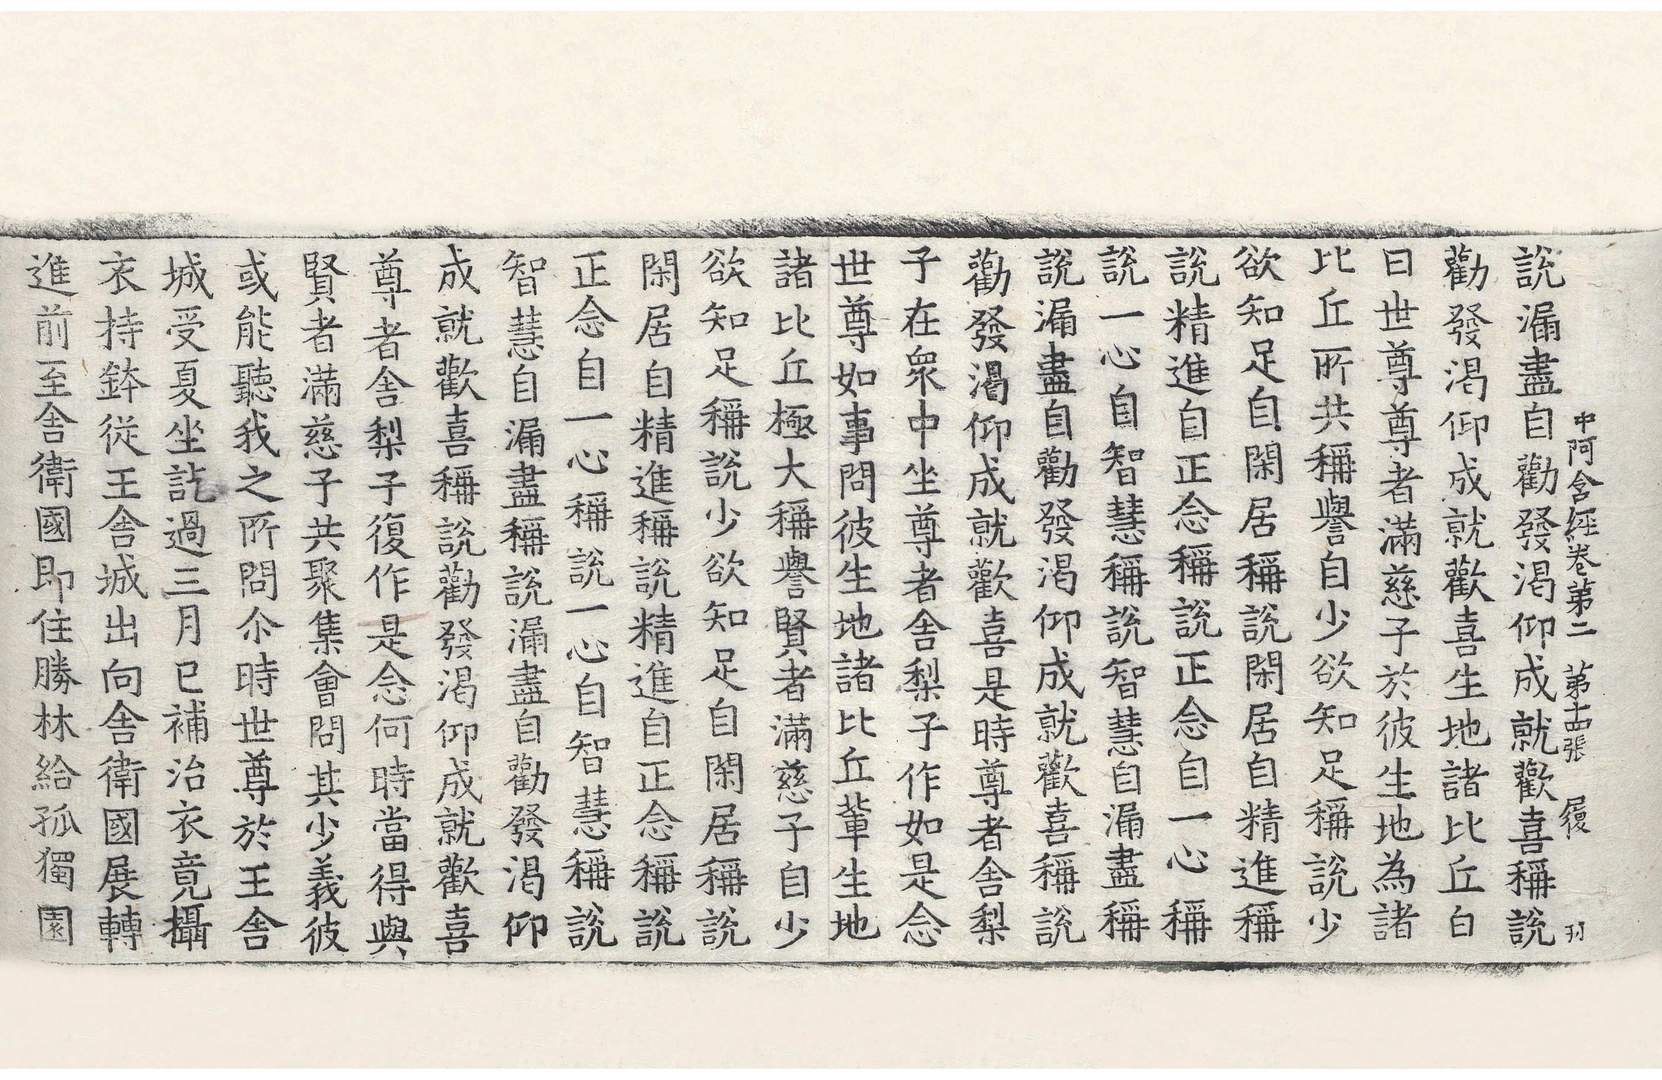 中阿含經卷第二 第 張 履
說漏盡自勸發渴仰成就歡喜稱說
勸發渴仰成就歡喜生地諸比丘白
曰世尊尊者滿慈子於彼生地為諸
比丘所共稱譽自少欲知足稱說少
欲知足自閑居稱說閑居自精進稱
說精進自正念稱說正念自一心稱
說一心自智慧稱說智慧自漏盡稱
說漏盡自勸發渴仰成就歡喜稱說
勸發渴仰成就歡喜是時尊者舍梨
子在眾中坐尊者舍梨子作如是念
世尊如事問彼生地諸比丘輩生地
諸比丘極大稱譽賢者滿慈子自少
欲知足稱說少欲知足自閑居稱說
閑居自精進稱說精進自正念稱說
正念自一心稱說一心自智慧稱說
智慧自漏盡稱說漏盡自勸發渴仰
成就歡喜稱說勸發渴仰成就歡喜
尊者舍梨子復作是念何時當得與
賢者滿慈子共聚集會問其少義彼
或能聽我之所問尒時世尊於王舍
城受夏坐訖過三月已補治衣竟攝
衣持鉢從王舍城出向舍衛國展轉
進前至舍衛國即住勝林給孤獨園